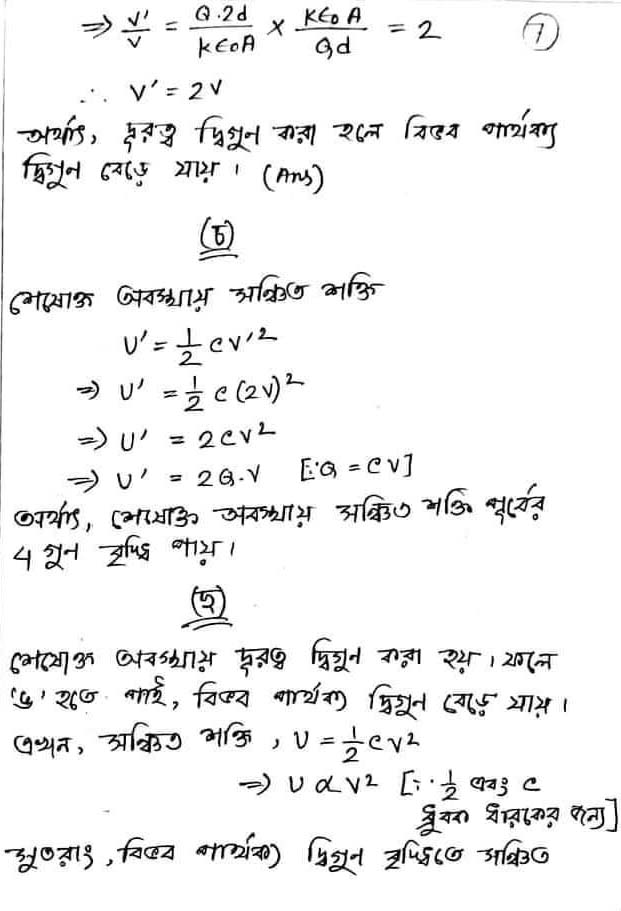 ⇒ V'/V = Q.2d/KϵoA × Kϵo A/Qd = 2 (7)
∴ V' = 2V
অর্থাৎ, দূরত্ব দ্বিগুন করা হলে বিভব পার্থক্য
দ্বিগুন বেড়ে যায়। (Ans)
(চ)
শেষোক্ত অবস্থায় সঞ্চিত শক্তি
U' = 1/2 CV'²
⇒ U' = 1/2 C (2V)²
⇒ U' = 2CV²
⇒ U' = 2Q.V [∵ Q = CV]
অর্থাৎ, শেষোক্ত অবস্থায় সঞ্চিত শক্তি পূর্বের
4 গুন বৃদ্ধি পায়।
(ছ)
শেষোক্ত অবস্থায় দূরত্ব দ্বিগুন করা হয়। ফলে
'ঙ' হতে পাই, বিভব পার্থক্য দ্বিগুন বেড়ে যায়।
এখন, সঞ্চিত শক্তি, U = 1/2 CV²
⇒ U ∝ V² [∵ 1/2 এবং C
ধ্রুবক ধারকের জন্য]
সুতরাং, বিভব পার্থক্য দ্বিগুন বৃদ্ধিতে সঞ্চিত